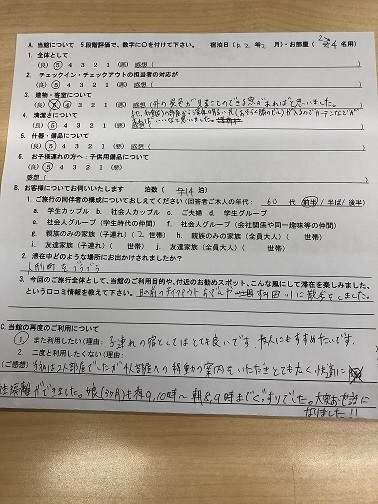 A. 当館について 5段階評価で、数字に○を付けて下さい。 宿泊日( R. 2 年 2 月)・お部屋( 2→4 名用)
1. 全体として
(良) 5 4 3 2 1 (悪) 感想(
2. チェックイン・チェックアウトの担当者の対応が
(良) 5 4 3 2 1 (悪) 感想(
3. 建物・客室について
(良) 4 3 2 1 (悪) 感想(外の景色が見ることのできる窓があればと思いました。
4. 清潔さについて
と思いました。
(良) 5 4 3 2 1 (悪) 感想(
5. 什器・備品について
(良) 5 4 3 2 1 感想(
6. お子様連れの方へ:子供用備品について
(良) 5 4 3 2 1 感想(
B. お客様についてお伺いいたします 泊数( 泊)
1. ご旅行の同伴者の構成についておしえてください(回答者ご本人の年代: 代 前半 / 半ば / 後半)
a. 学生カップル b. 社会人カップル c. ご夫婦 d. 学生グループ
e. 社会人グループ(学生時代の仲間) f. 社会人グループ(会社関係や同一趣味等の仲間)
g. 親族のみの家族(子連れ)( 2 世帯) h. 親族のみの家族(全員大人)( 世帯)
i. 友達家族(子連れ)( 世帯) j. 友達家族(全員大人)( 世帯)
2. 滞在中どのような場所にお出かけされましたか?
人形町をうろうろ
3. 今回のご旅行全体として、当館のご利用目的や、付近のお勧めスポット、こんな風にして滞在を楽しみました、
という口コミ情報を教えて下さい。 目の前の 隅田川に散歩をしました。
C. 当館の再度のご利用について
1. また利用したい(理由: 子連れの宿としてはとても良いです。友人にもすすめたいです。
2. 二度と利用したくない(理由:
(ご感想) 2人部屋でしたが4人部屋への移動の案内をいただきとても広く快適に
ができました。娘(3か月)も夜9,10時〜朝8,9時までぐっすりでした。大変お世話に
なりました!!